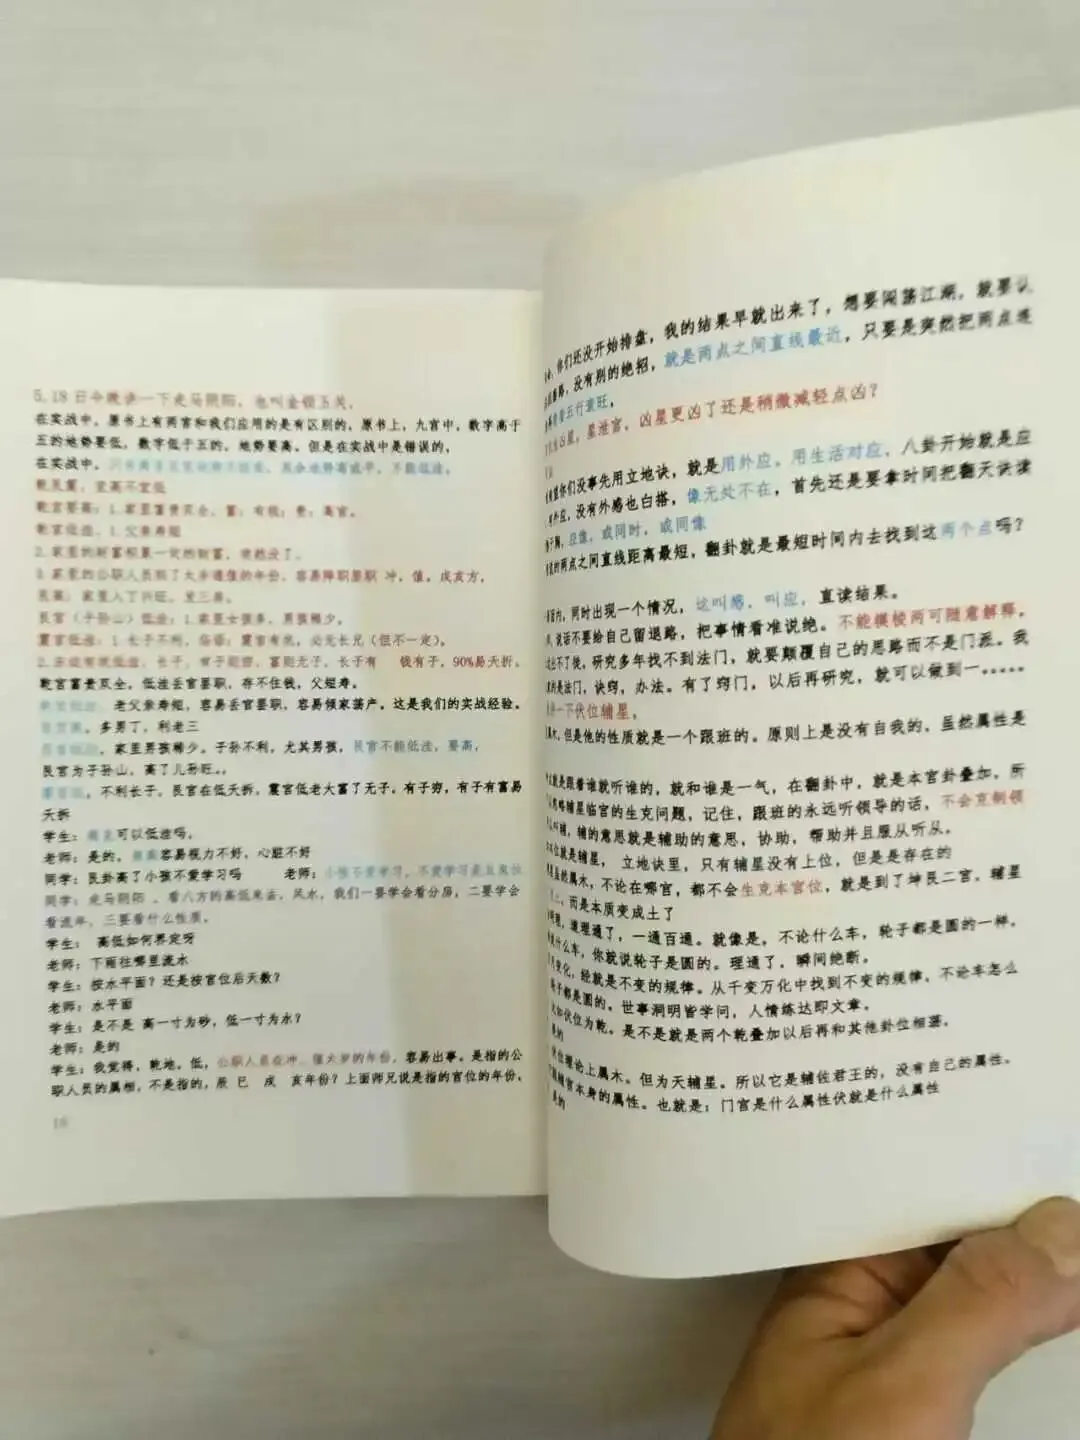 5.18日今晚讲一下走马阴阳，也叫金锁玉关。
在实战中，原书上有两宫和我们应用的是有区别的，原书上，九宫中，数字高于
五的地势要低，数字低于五的，地势要高，但是在实战中是错误的，
在实战中，
乾艮震，宜高不宜低
乾宫要高：1.家里富贵双全，富：有钱；贵：高官。
乾宫低洼：1.父亲寿短
2.家里的财富积累一定的财富，突然没了。
3.家里的公职人员到了大步通值的年份，容易降职罢职 冲，值，戌亥方，
艮高：家里人丁兴旺，发三房。
艮宫（子孙山）低洼：1.家里女孩多，男孩稀少。
震宫低洼：1.长子不利，俗语：震宫有坑，必无长兄（但不一定）。
长子，有子则穷，富则无子，长子有 钱有子，90%易夭折。
乾宫富贵双全，低洼丢官罢职，存不住钱，父短寿。
老父亲寿短，容易丢官罢职，容易倾家荡产。这是我们的实战经验。
多男丁，利老三
家里男孩稀少。子孙不利，尤其男孩，艮宫不能低洼，要高，
艮宫为子孙山，高了儿孙旺。。
不利长子，艮宫在低夭折，震宫低老大富了无子，有子穷，有子有富易
夭折
学生：可以低洼吗，
老师：是的，容易视力不好，心脏不好
同学：艮卦高了小孩不爱学习吗 老师：小孩不爱学习，不爱学习是五鬼位
同学：走马阴阳，看八方的高低来去，风水，我们一要学会看分房，二要学会
看流年，三要看什么性质。
学生： 高低如何界定呀
老师：下雨往哪里流水
学生：按水平面？还是按宫位后天数？
老师：水平面
学生：是不是 高一寸为砂，低一寸为水？
老师：是的
学生：我觉得，乾地，低，公职人员在冲、值太岁的年份，容易出事。是指的公
职人员的属相，不是指的，辰 巳 戌 亥年份？上面师兄说是指的宫位的年份，
你们还没开始排盘，我的结果早就出来了，想要闯荡江湖，就要认
没有别的绝招，就是两点之间直线最近，只要是突然把两点连
看五行衰旺，
星泄宫，凶星更凶了还是稍微减轻点凶？
你们没事先用立地诀，就是用外应，用生活对应，八卦开始就是应
外应，没有外感也白搭，像无处不在，首先还是要拿时间把翻天诀读
应像，或同时，或同像
的两点之间直线距离最短，翻卦就是最短时间内去找到这两个点吗？
面内，同时出现一个情况，这叫感，叫应，直读结果。
说话不要给自己留退路，把事情看准说绝。不能模棱两可随意解释。
不了後，研究多年找不到法门，就要颠覆自己的思路而不是门派。我
的是法门，诀窍，办法。有了窍门，以后再研究，就可以做到一.....
一下伏位辅星，
属木，但是他的性质就是一个跟班的。原则上是没有自我的，虽然属性是
就是跟着谁就听谁的，就和谁是一气，在翻卦中，就是本宫卦叠加，所
忽略辅星临宫的生克问题，记住，跟班的永远听领导的话，不会克制领
叫辅，辅的意思就是辅助的意思，协助，帮助并且服从听从。
位就是辅星， 立地诀里，只有辅星没有上位，但是是存在的
虽然属木，不论在哪宫，都不会生克本宫位，就是到了坤艮二宫，辅星
而是本质变成土了
道理通了，一通百通。就像是，不论什么车，轮子都是圆的一样，
是什么车，你就说轮子是圆的。理通了，瞬间绝断。
变化，经就是不变的规律。从千变万化中找到不变的规律，不论车怎么
轮子都是圆的。世事洞明皆学问，人情练达即文章。
如伏位为乾。是不是就是两个乾叠加以后再和其他卦位相荡。
是的
伏位理论上属木。但为天辅星。所以它是辅佐君王的，没有自己的属性。
宫本身的属性。也就是：门宫是什么属性伏就是什么属性
是的